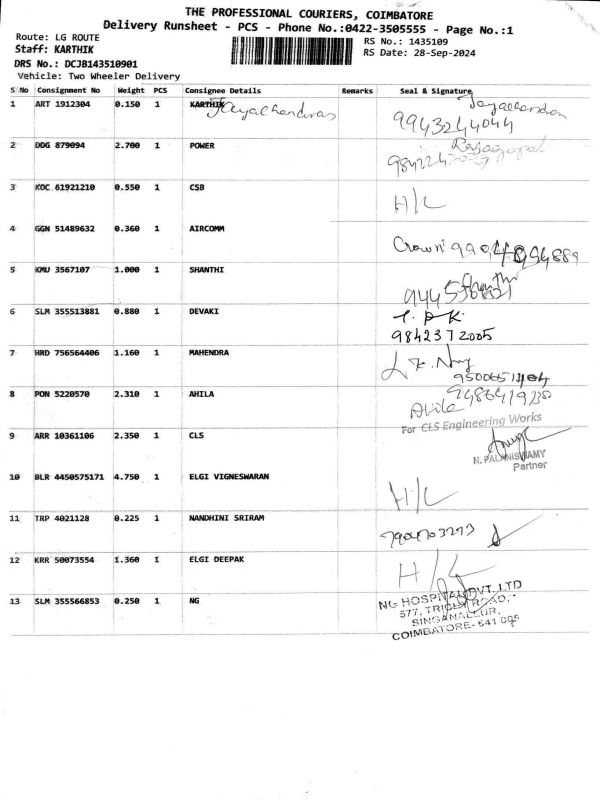 THE PROFESSIONAL COURIERS, COIMBATORE
Delivery Runsheet - PCS - Phone No.:0422-3505555 - Page No.:1
Route: LG ROUTE
RS No.: 1435109
Staff: KARTHIK
RS Date: 28-Sep-2024
DRS No.: DCJB143510901
Vehicle: Two Wheeler Delivery
S No Consignment No Weight PCS Consignee Details Remarks Seal & Signature
1 ART 1912304 0.150 1 KARTHIK Jayachandran Jayachandran
9943244044
2 DDG 879094 2.700 1 POWER Rajagopal
3 KOC 61921210 0.550 1 CSB H/L
4 GGN 51489632 0.360 1 AIRCOMM Crown
5 KMU 3567107 1.000 1 SHANTHI
6 SLM 355513881 0.880 1 DEVAKI T. P. K.
9842372005
7 HRD 756564406 1.160 1 MAHENDRA
8 PON 5220570 2.310 1 AHILA
For CLS Engineering Works
9 ARR 10361106 2.350 1 CLS
N. PALANISWAMY
Partner
10 BLR 4450575171 4.750 1 ELGI VIGNESWARAN H/L
11 TRP 4021128 0.225 1 NANDHINI SRIRAM
12 KRR 50073554 1.360 1 ELGI DEEPAK H/L
13 SLM 355566853 0.250 1 NG NG HOSPITAL PVT. LTD
577, TRICHY ROAD,
SINGANALLUR,
COIMBATORE- 641 005